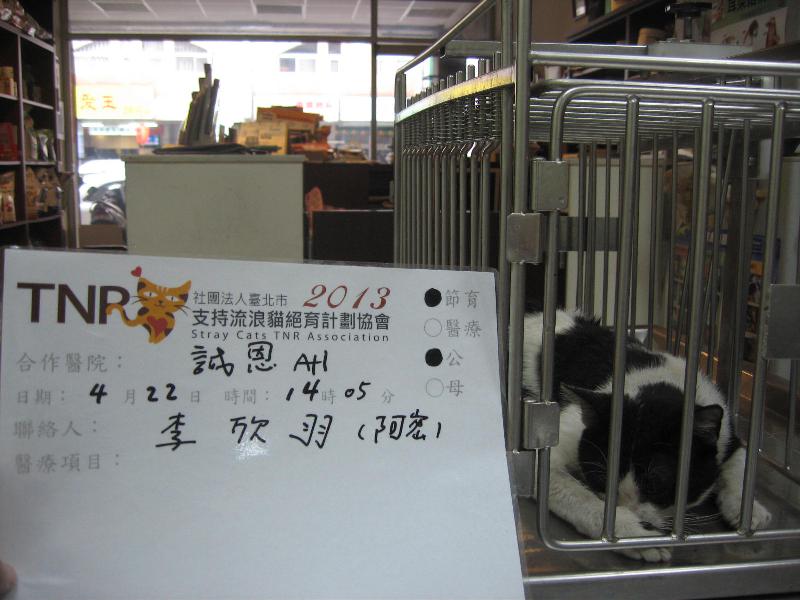 TNR
社團法人臺北市 2013
支持流浪貓絕育計劃協會
Stray Cats TNR Association
●節育
○醫療
●公
○母
合作醫院： 誠恩 AH
日期： 4 月 22 日 時間： 14 時 05 分
聯絡人： 李欣羽 (阿密)
醫療項目：